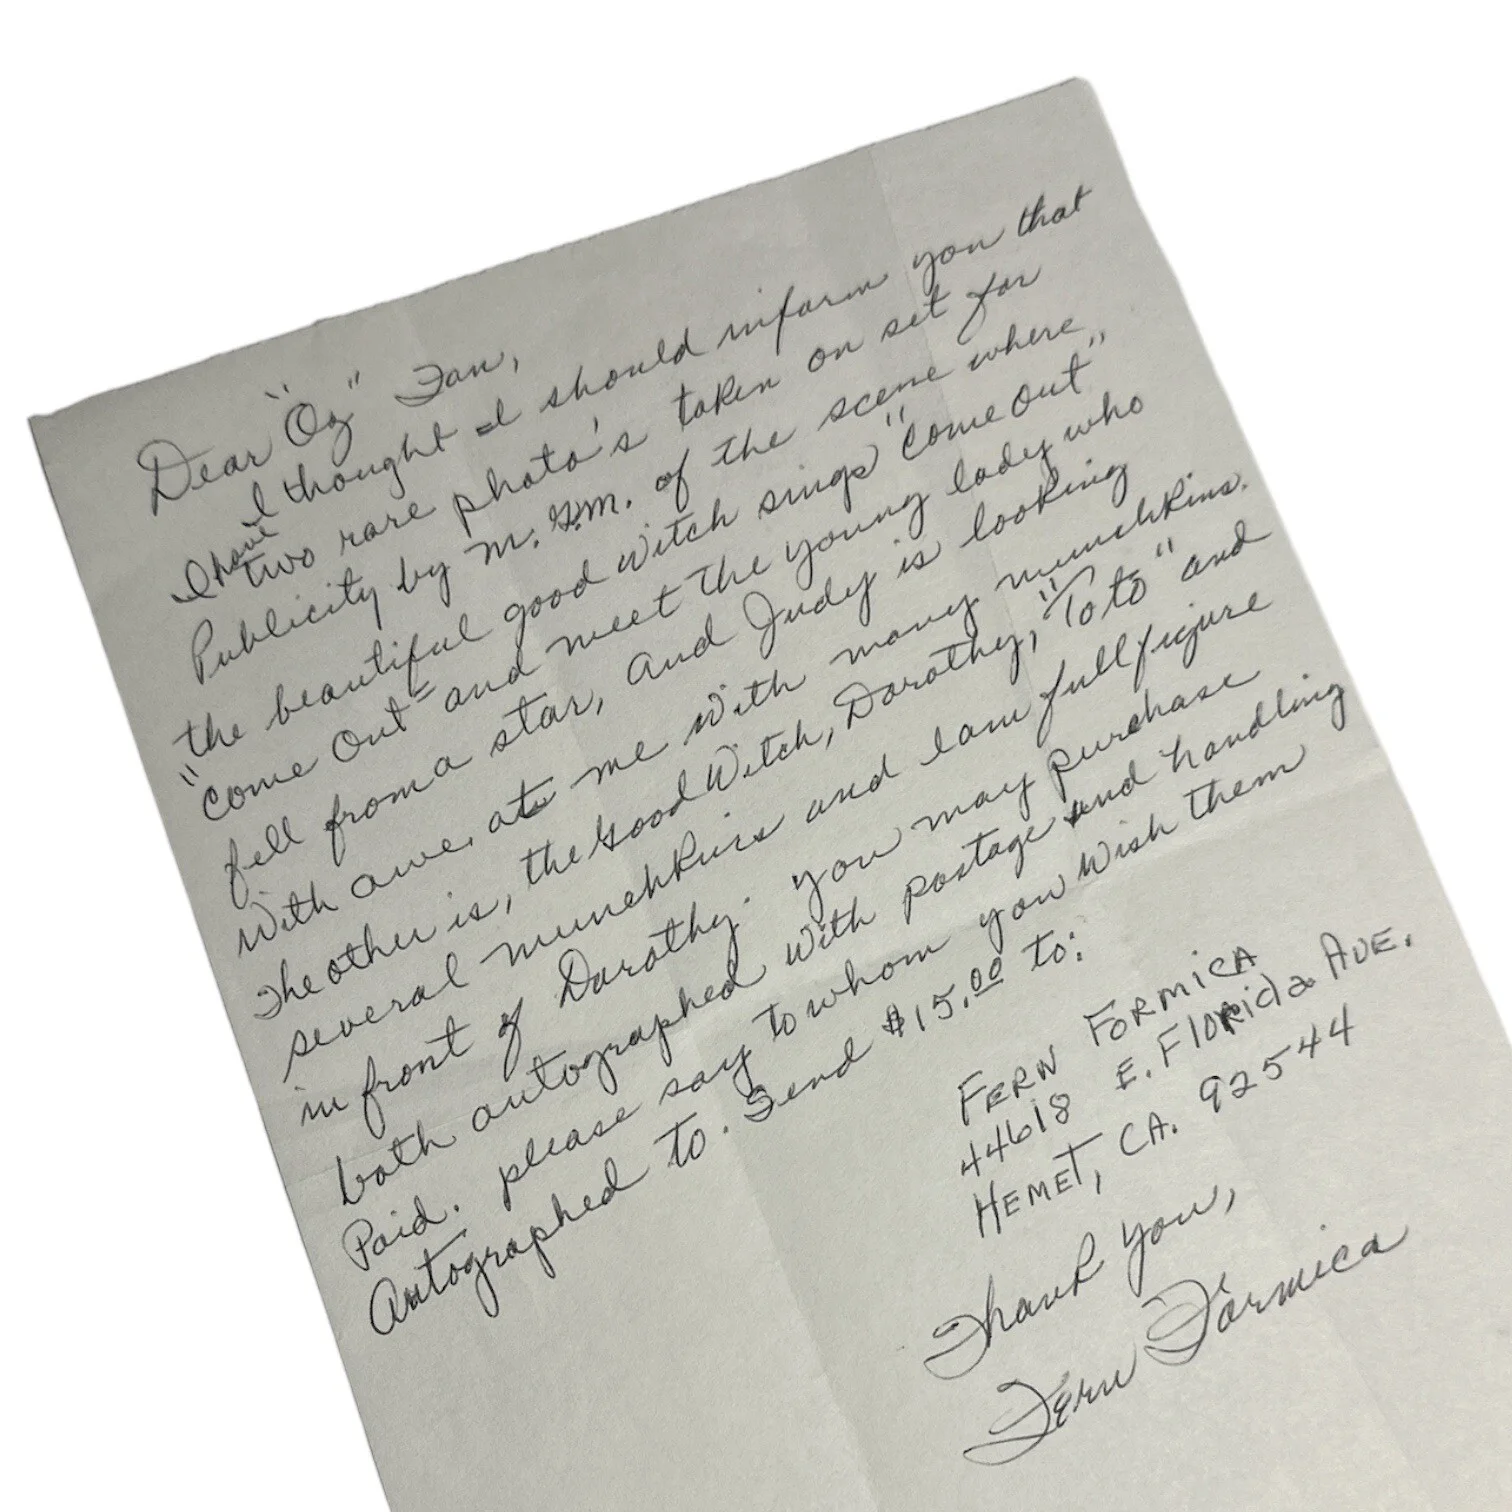 Dear "Oz" Fan,
I thought I should inform you that
I have two rare photo's taken on set for
Publicity by M.G.M. of the scene where
the beautiful good Witch sings "Come Out"
"Come Out" and meet the young lady who
fell from a star, and Judy is looking
With awe, at me with many munchkins.
The other is, the Good Witch, Dorothy, "Toto" and
several munchkins and I am full figure
in front of Dorothy. you may purchase
both autographed with postage and handling
Paid. please say to whom you Wish them
Autographed to. Send $15.00 to:
FERN FORMICA
44618 E. FLORida AVE.
HEMET, CA. 92544
Thank you,
Fern Formica